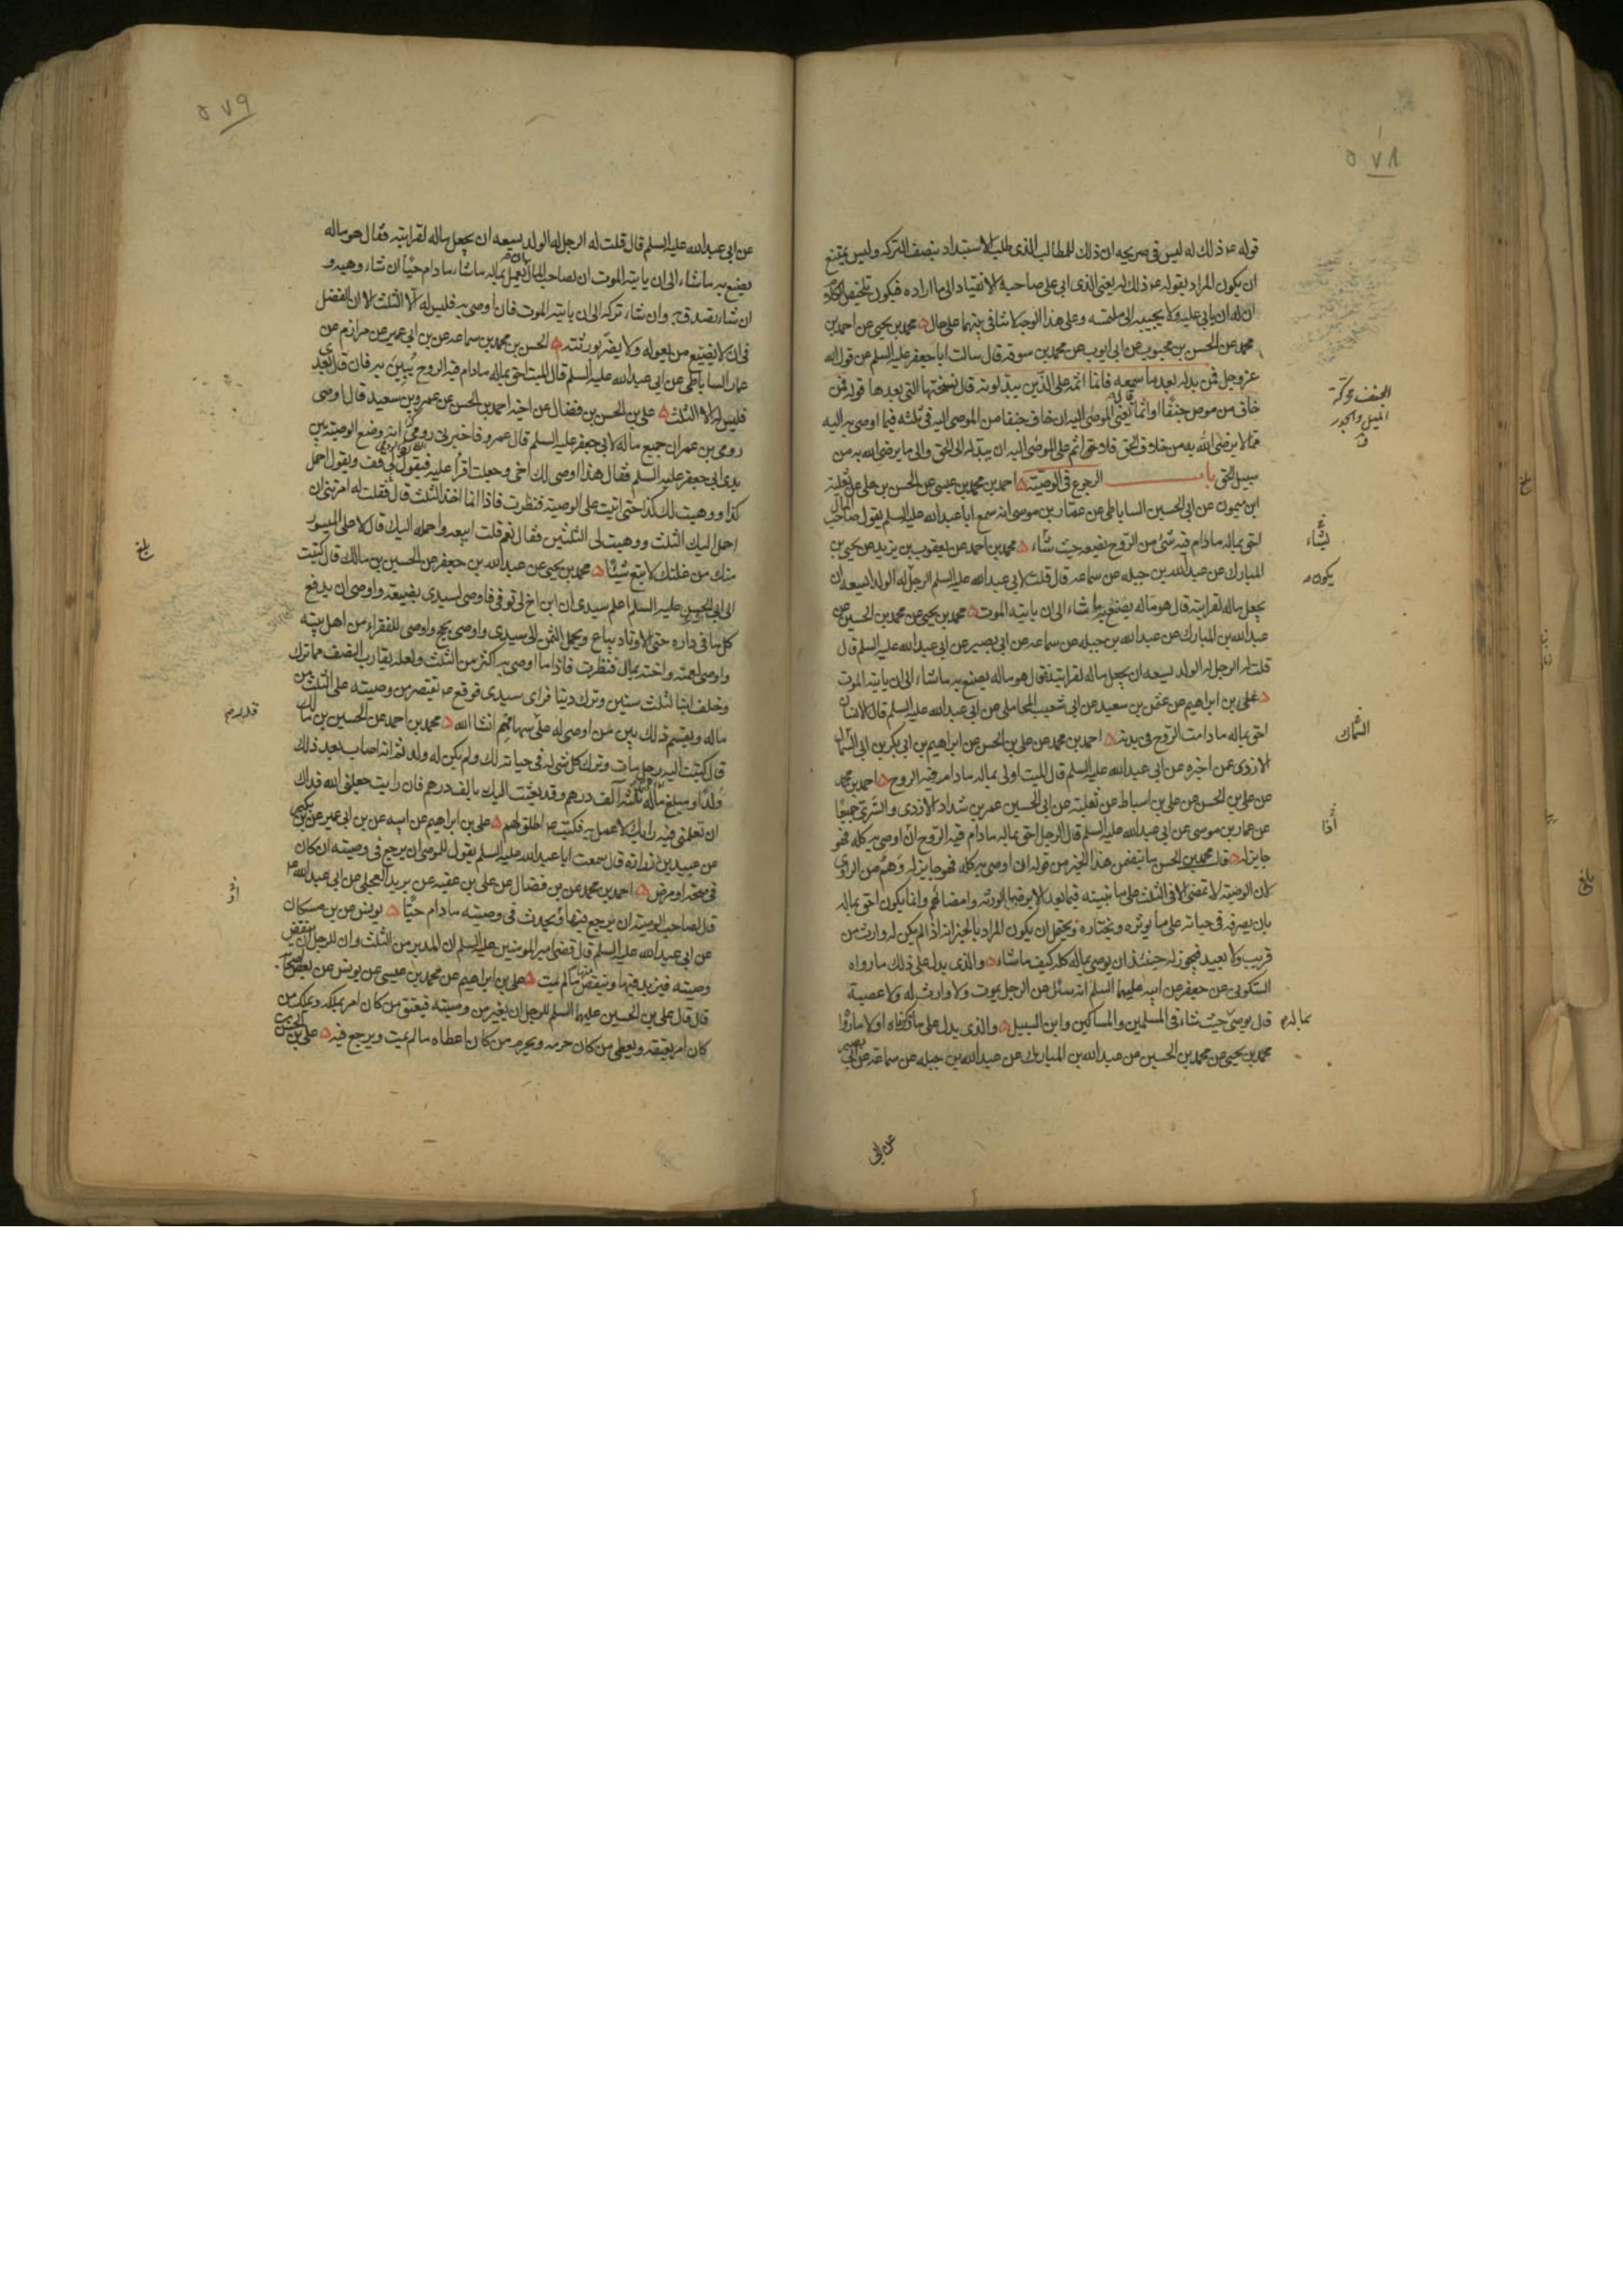 ٥٧٨
قوله ع ذلك له ليس في صريحه ان ذلك للمطالب الذي طلب الاستبداد بنصف التركه وليس يمتنع
ان يكون المراد بقوله ع ذلك له يعني الذي ابى على صاحبه الانقياد الى ما اراده فيكون تلخيص الكلام
ان له ان يابى عليه ولا يجيبه الى ملتمسه وعلى هذا الوجه لا تنافى بينهما على حال محمد بن يحيى عن احمد بن
محمد عن الحسن بن محبوب عن ابى ايوب عن محمد بن سوقه قال سالت ابا جعفر عليه السلم عن قول الله
عز وجل فمن بدله بعد ما سمعه فانما اثمه على الذين يبدلونه قال نسختها التي بعدها قوله فمن
خاف من موص جنفا او اثما قال يعنى الموصى اليه ان خاف جنفا من الموصى اليه في ثلثه فيما اوصى به اليه
مما لا يرضى الله به من خلاف الحق فلا اثم على الموصى اليه ان يبدله الى الحق والى ما يرضى الله به من
سبيل الحق باب الرجوع في الوصية احمد بن محمد بن عيسى عن الحسن بن على عن ثعلبة
ابن ميمون عن ابى الحسين الساباطى عن عمار بن موسى انه سمع ابا عبد الله عليه السلم يقول صاحب المال
احق بماله ما دام فيه شئ من الروح يضعه حيث شاء محمد بن احمد عن يعقوب بن يزيد عن يحيى بن
المبارك عن عبد الله بن جبله عن سماعه قال قلت لابى عبد الله عليه السلم الرجل له الولد ايسعه ان
يجعل ماله لقرابته قال هو ماله يصنع به ما شاء الى ان ياتيه الموت محمد بن يحيى عن محمد بن الحسين عن
عبد الله بن المبارك عن عبد الله بن جبيله عن سماعه عن ابى بصير عن ابى عبد الله عليه السلم قال
قلت له الرجل له الولد ايسعه ان يجعل ماله لقرابته فقال هو ماله يصنع به ما شاء الى ان ياتيه الموت
على بن ابراهيم عن عثمن بن سعيد عن ابى شعيب المحاملى عن ابى عبد الله عليه السلم قال الانسان
احق بماله ما دامت الروح في بدنه احمد بن محمد عن على بن الحسن عن ابراهيم بن ابى بكر بن ابى السمال
الازدى عمن اخبره عن ابى عبد الله عليه السلم قال الميت اولى بماله ما دام فيه الروح احمد بن محمد
عن على بن الحسن عن على بن اسباط عن ثعلبة عن ابى الحسين عمر بن شداد الازدى والسرى جميعا
عن عمار بن موسى عن ابى عبد الله عليه السلم قال الرجل احق بماله ما دام فيه الروح ان اوصى به كله فهو
جايز له قال محمد بن الحسن ما تتضمن هذا الخبر من قوله ان اوصى به كله فهو جايز له وهم من الراوى
لان الوصية لا تمضى الا في الثلث على ما نبينه فيما بعد الا برضا الورثه وامضائهم وانما يكون احق بماله
بان يصرفه في حياته على ما يوثره ويختاره ويحتمل ان يكون المراد بالخبر انه اذا لم يكن له وارث من
قريب ولا بعيد فيجوز له حينئذ ان يوصى بماله كله كيف ما شاء والذى يدل على ذلك ما رواه
السكونى عن جعفر عن ابيه عليهما السلم انه سئل عن الرجل يموت ولا وارث له ولا عصبة
قال يوصى حيث شاء في المسلمين والمساكين وابن السبيل والذى يدل على ما ذكرناه اولا ما رواه
محمد بن يحيى عن محمد بن الحسين عن عبد الله بن المبارك عن عبد الله بن جبله عن سماعه عن ابى بصير
عن ابى
الجنف محركة
الميل والجور
ق
يشاء
يكون
السماك
بماله
بلغ
٥٧٩
عن ابى عبد الله عليه السلم قال قلت له الرجل له الولد يسعه ان يجعل ماله لقرابته فقال هو ماله
يصنع به ما شاء الى ان ياتيه الموت ان لصاحب المال ان يعمل بماله ما شاء ما دام حيا ان شاء وهبه و
ان شاء تصدق به وان شاء تركه الى ان ياتيه الموت فان اوصى به فليس له الا الثلث الا ان الفضل
في ان لا يضيع من يعوله ولا يضر بورثته الحسن بن محمد بن سماعه عن بن ابى عمير عن مرازم عن
عمار الساباطى عن ابى عبد الله عليه السلم قال الميت احق بماله ما دام فيه الروح يبين به فان قال بعدى
فليس له الا الثلث على بن الحسن بن فضال عن اخيه احمد بن الحسن عن عمرو بن سعيد قال اوصى
رومى بن عمران جميع ماله لابى جعفر عليه السلم قال عمرو فاخبرنى رومى انه وضع الوصيته بين
يدى ابى جعفر عليه السلم فقال هذا اوصى لك اخى وجعلت اقرأ عليه فيقول لى قف ويقول احمل
كذا ووهبت لك كذا حتى اتيت على الوصيته فنظرت فاذا انما اخذ الثلث قال فقلت له امرتنى ان
احمل اليك الثلث ووهبت لى الثلثين فقال نعم قلت ابيعه واحمله اليك قال لا على الميسور
منك من غلتك لا تبع شيئا محمد بن يحيى عن عبد الله بن جعفر عن الحسين بن مالك قال كتبت
الى ابى الحسن عليه السلم اعلم سيدى ان ابن اخ لى توفى فاوصى لسيدى بضيعة واوصى ان يدفع
كل ما في داره حتى الاوتاد تباع ويحمل الثمن الى سيدى واوصى بحج واوصى للفقراء من اهل بيته
واوصى لعمته واخته بمال فنظرت فاذا ما اوصى به اكثر من الثلث ولعله يقارب النصف مما ترك
وخلف ابنا لثلث سنين وترك دينا فراى سيدى فوقع ع يقتصر من وصيته على الثلث من
ماله ويقسم ذلك بين من اوصى له على سهامهم انشا الله محمد بن احمد عن الحسين بن مالك
قال كتبت اليه رجل مات وترك كل شئ له في حياته لك ولم يكن له ولد ثم انه اصاب بعد ذلك
ولدا ومبلغ ماله ثلثه الف درهم وقد بعثت اليك بالف درهم فان رايت جعلنى الله فداك
ان تعلمنى فيه رايك لاعمل به فكتب ع اطلق لهم على بن ابراهيم عن ابيه عن بن ابى عمير عن بن بكير
عن عبيد بن زرارة قال سمعت ابا عبد الله عليه السلم يقول للموصى ان يرجع في وصيته ان كان
في صحه او مرض احمد بن محمد عن بن فضال عن على بن عقبه عن بريد العجلى عن ابى عبد الله ع
قال لصاحب الوصية ان يرجع فيها ويحدث في وصيته ما دام حيا يونس عن بن مسكان
عن ابى عبد الله عليه السلم قال قضى امير المومنين عليه السلم ان المدبر من الثلث وان للرجل ان ينقض
وصيته فيزيد فيها وينقص منها ما لم يمت على بن ابراهيم عن محمد بن عيسى عن يونس عن بعض اصحابه
قال قال على بن الحسين عليهما السلم للرجل ان يغير من وصيته فيعتق من كان امر بملكه ويملك من
كان امر بعتقه ويعطى من كان حرمه ويحرم من كان اعطاه ما لم يمت ويرجع فيه على بن الحسن
بلغ